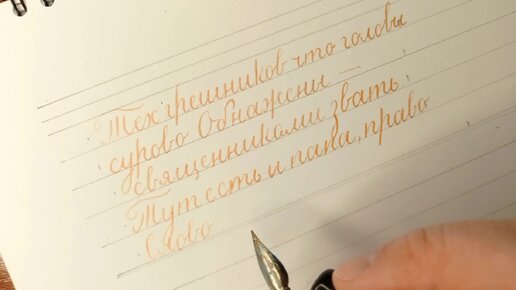 Тех грешников что головы
сурово Обнажены —
священниками звать.
Тут есть и папа, право
Слово